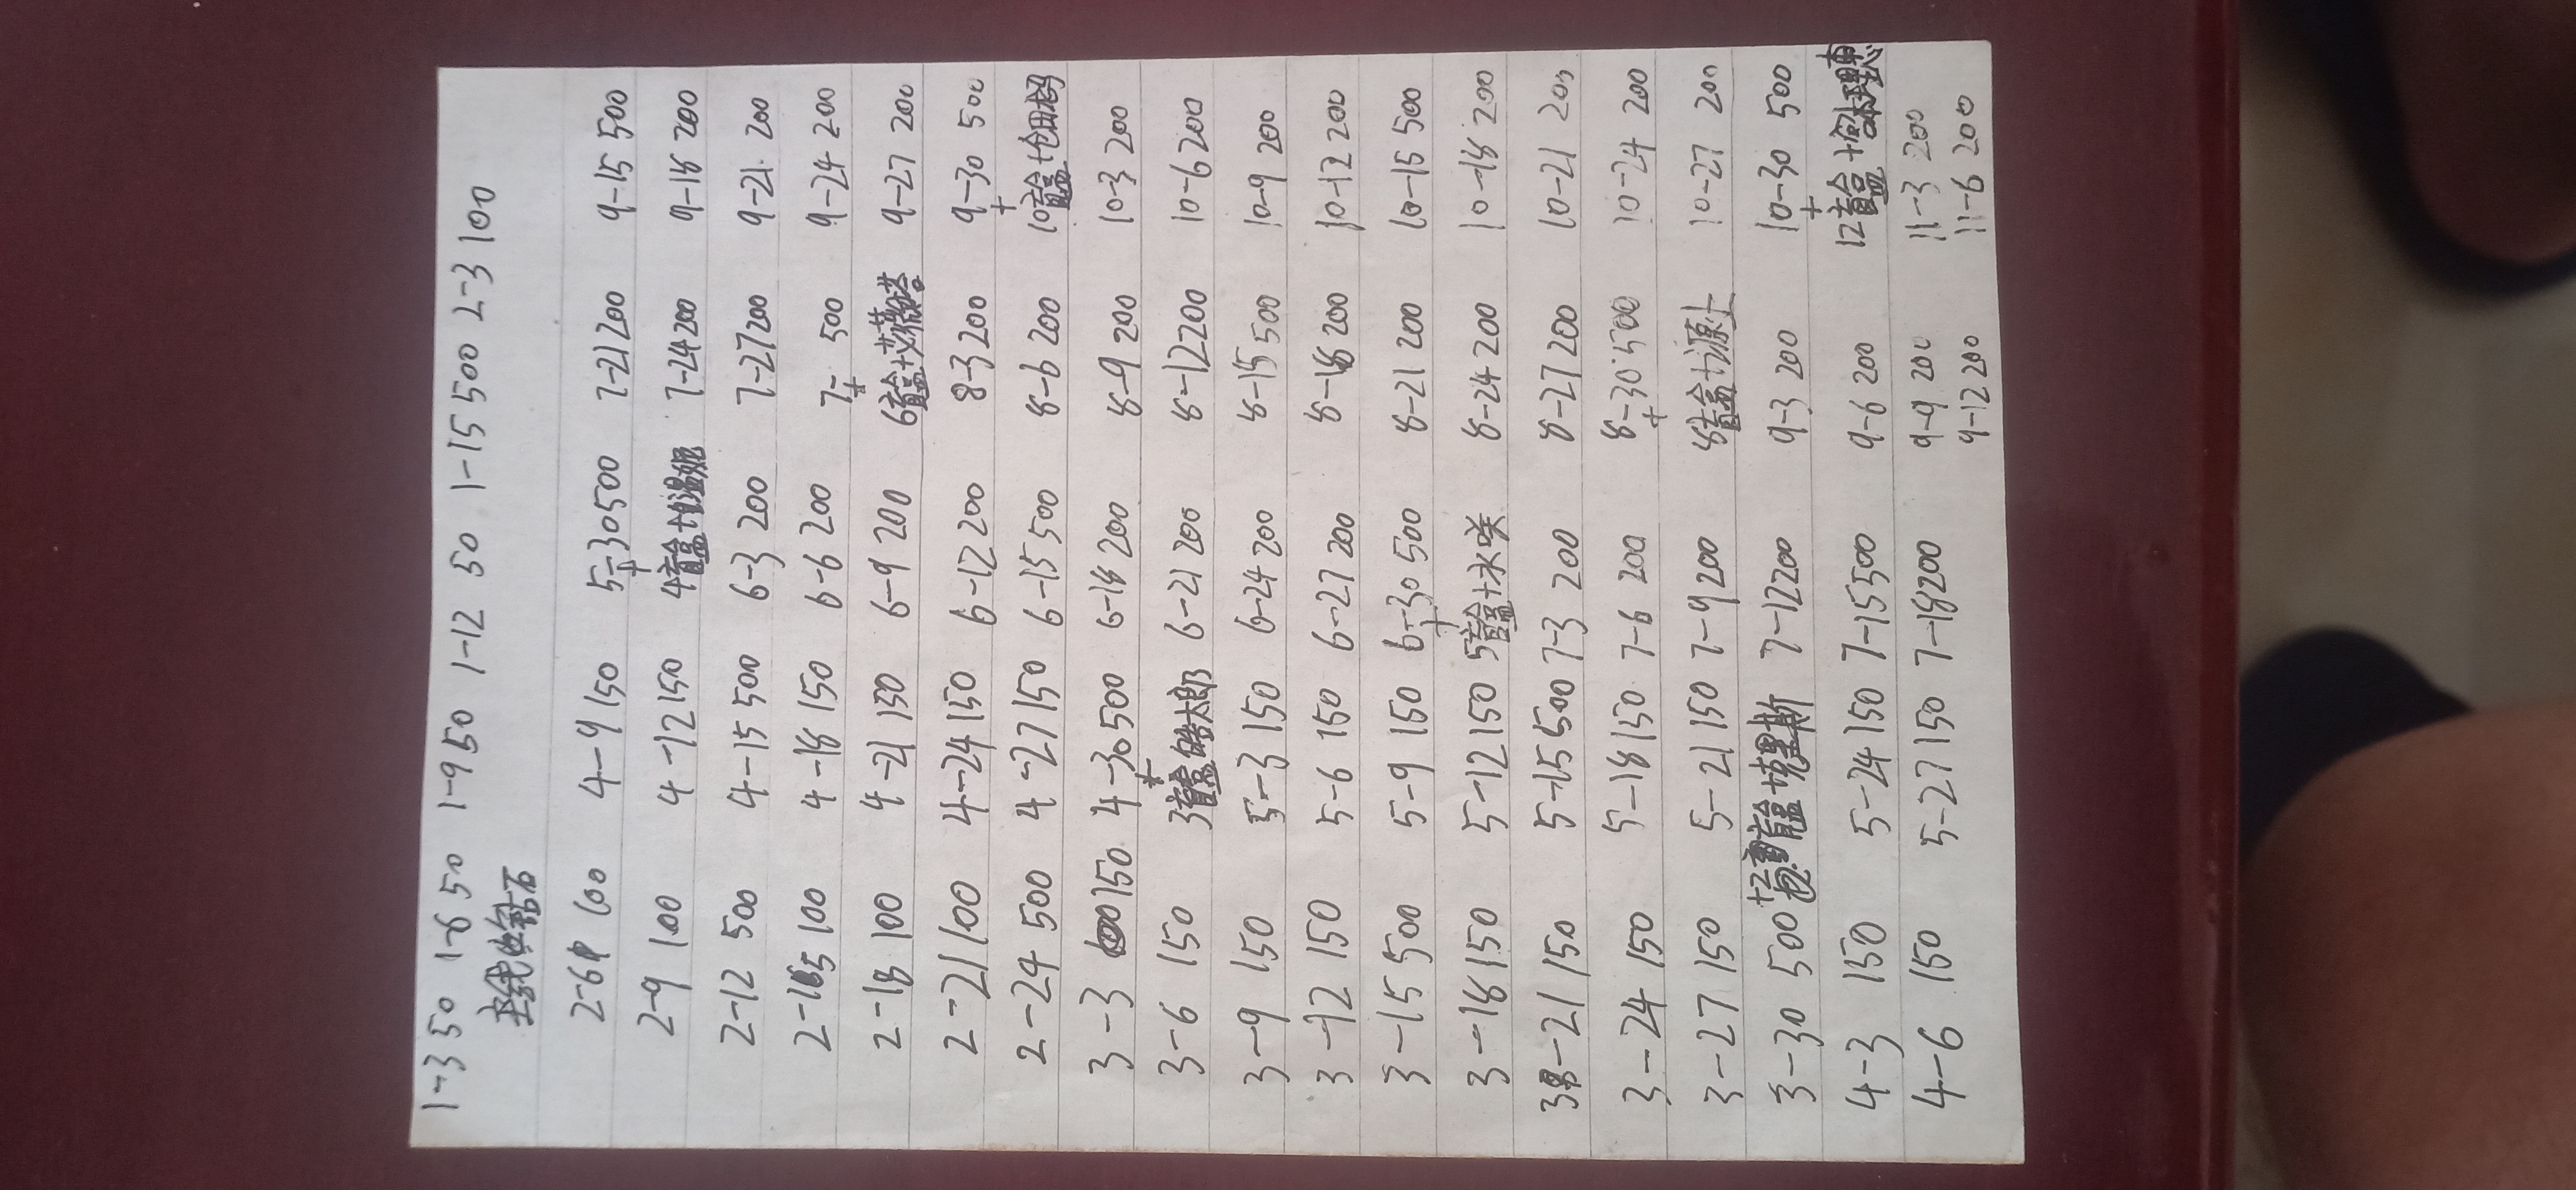 1-3 50 1-6 50 1-9 50 1-12 50 1-15 500 2-3 100
主线收钻石
2-6 100 4-9 150 5-30 500 7-21 200 9-15 500
+
2-9 100 4-12 150 4盲盒+ 7-24 200 9-18 200
2-12 500 4-15 500 6-3 200 7-27 200 9-21 200
2-15 100 4-18 150 6-6 200 7- 500 9-24 200
+
2-18 100 4-21 150 6-9 200 6盲盒+艾蒂塔 9-27 200
2-21 100 4-24 150 6-12 200 8-3 200 9-30 500
+
2-24 500 4-27 150 6-15 500 8-6 200 10盲盒+
3-3 150 4-30 500 6-18 200 8-9 200 10-3 200
+
3-6 150 3盲盒 皓太郎 6-21 200 8-12 200 10-6 200
3-9 150 5-3 150 6-24 200 8-15 500 10-9 200
3-12 150 5-6 150 6-27 200 8-18 200 10-12 200
3-15 500 5-9 150 6-30 500 8-21 200 10-15 500
+
3-18 150 5-12 150 5盲盒+水咲 8-24 200 10-18 200
3-21 150 5-15 500 7-3 200 8-27 200 10-21 200
3-24 150 5-18 150 7-6 200 8-30 500 10-24 200
+
3-27 150 5-21 150 7-9 200 8盲盒+源止 10-27 200
3-30 500 +2盲盒+ 7-12 200 9-3 200 10-30 500
+
4-3 150 5-24 150 7-15 500 9-6 200 12盲盒+
4-6 150 5-27 150 7-18 200 9-9 200 11-3 200
9-12 200 11-6 200